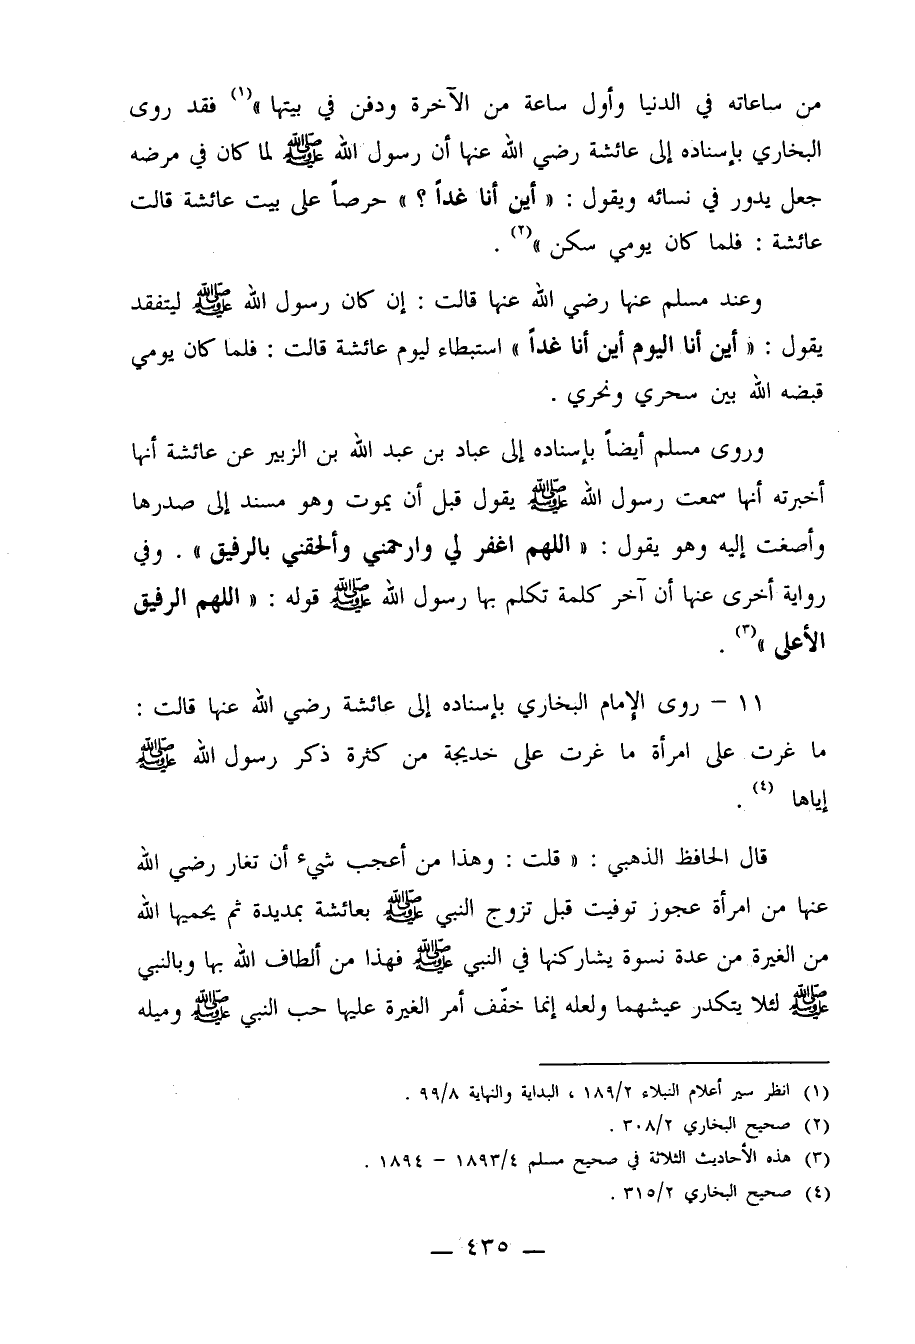 من ساعاته في الدنيا وأول ساعة من الآخرة ودفن في بيتها »(١) فقد روى
البخاري بإسناده إلى عائشة رضي الله عنها أن رسول الله ﷺ لما كان في مرضه
جعل يدور في نسائه ويقول : « أين أنا غداً ؟ » حرصاً على بيت عائشة قالت
عائشة : فلما كان يومي سكن »(٢) .
وعند مسلم عنها رضي الله عنها قالت : إن كان رسول الله ﷺ ليتفقد
يقول : « أين أنا اليوم أين أنا غداً » استبطاء ليوم عائشة قالت : فلما كان يومي
قبضه الله بين سحري ونحري .
وروى مسلم أيضاً بإسناده إلى عباد بن عبد الله بن الزبير عن عائشة أنها
أخبرته أنها سمعت رسول الله ﷺ يقول قبل أن يموت وهو مسند إلى صدرها
وأصغت إليه وهو يقول : « اللهم اغفر لي وارحمني وألحقني بالرفيق » . وفي
رواية أخرى عنها أن آخر كلمة تكلم بها رسول الله ﷺ قوله : « اللهم الرفيق
الأعلى »(٣) .
١١ – روى الإمام البخاري بإسناده إلى عائشة رضي الله عنها قالت :
ما غرت على امرأة ما غرت على خديجة من كثرة ذكر رسول الله ﷺ
إياها (٤) .
قال الحافظ الذهبي : « قلت : وهذا من أعجب شيء أن تغار رضي الله
عنها من امرأة عجوز توفيت قبل تزوج النبي ﷺ بعائشة بمديدة ثم يحميها الله
من الغيرة من عدة نسوة يشاركنها في النبي ﷺ فهذا من ألطاف الله بها وبالنبي
ﷺ لئلا يتكدر عيشهما ولعله إنما خفّف أمر الغيرة عليها حب النبي ﷺ وميله
(١) انظر سير أعلام النبلاء ١٨٩/٢ ، البداية والنهاية ٩٩/٨ .
(٢) صحيح البخاري ٣٠٨/٢ .
(٣) هذه الأحاديث الثلاثة في صحيح مسلم ١٨٩٣/٤ – ١٨٩٤ .
(٤) صحيح البخاري ٣١٥/٢ .
— ٤٣٥ —